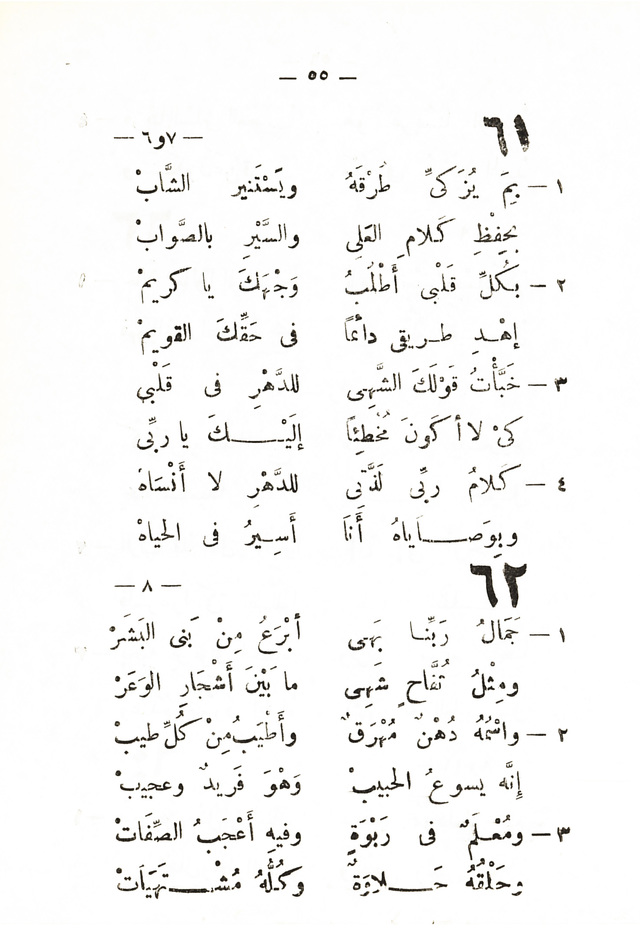 — ٥٥ —
٦١ — ٧و٦ —
١ — بِمَ يُزَكِّى طَرْقَهُ ويَسْتَنير الشَّابْ
بحِفْظِ كَلامِ العَلِى والسَّيْرِ بالصَّوابْ
٢ — بكُلِّ قَلْبى أَطْلُبُ وَجْهَكَ يا كريمْ
إهْدِ طريقى دائمًا فى حَقِّكَ القويمْ
٣ — خَبَّأْتُ قَوْلَكَ الشَّهِى للدَّهْرِ فى قَلْبي
كىْ لا أكونَ مُخْطِئًا إلَيْكَ يا ربِّى
٤ — كَلامُ ربِّى لَذَّتِى للدَّهْرِ لا أَنْسَاهْ
وبِوَصَاياهُ أَنَا أَسِيرُ فى الحياهْ
٦٢ — ٨ —
١ — جَمَالُ رَبِّنَا بَهِى أبْرَعُ مِنْ بَنى البَشَرْ
ومِثْلُ تُفَّاحٍ شَهِى ما بَيْنَ أَشْجَارِ الوَعَرْ
٢ — واسْمُهُ دُهْنٌ مُهْرَقٌ وأَطْيَبُ مِنْ كُلِّ طيبْ
إنَّه يسوعُ الحبيبْ وَهْوَ فَريدٌ وعجيبْ
٣ — ومُعْلَمٌ فى رَبْوَةٍ وفيهِ أَعْجَبُ الصِّفَاتْ
وحَلْقُهُ حَلاوَةٌ وكُلُّهُ مُشْتَهَيَاتْ